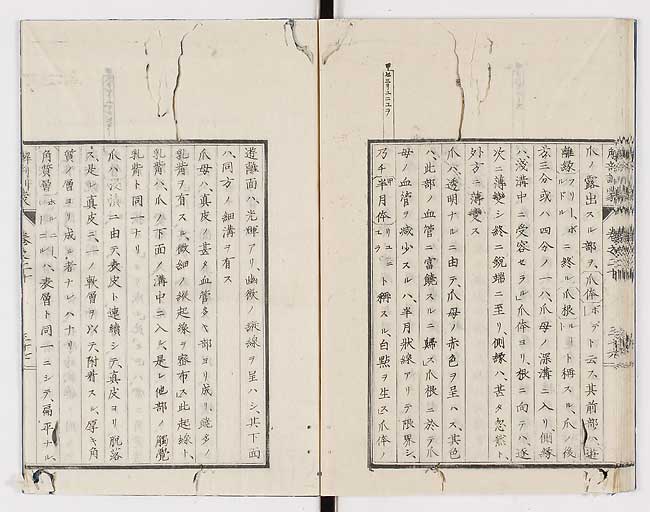 爪ノ露出スル部ヲ「爪体」ボデト云ス其前部ハ遊
離縁フリー、ボニ終ル爪根ルートト称スル、爪ノ後
方三分或ハ四分ノ一ハ、爪母ノ深溝ニ入リ、側縁
ハ浅溝中ニ受容セラル」爪体ヨリ、根ニ向テハ、逐
次ニ薄変シ終ニ鋭端ニ至リ、側縁ハ、甚タ忽然ト、
外方ニ薄変ス
爪ハ、透明ナルニ由テ、爪母ノ赤色ヲ呈ハス、其色
ハ、此部ノ血管ニ富饒スルニ歸ス」爪根ニ於テ爪
母ノ血管ヲ減少スルハ、半月状線アリテ限界シ、
乃チ「半月体」リュニユラト称スル、白點ヲ生ス」爪体ノ
遊離面ハ、光輝アリ、幽微ノ縦線ヲ呈ハシ、其下面
ハ、同方ノ細溝ヲ有ス
爪母ハ、真皮ノ甚タ血管多キ部ヨリ成リ、許多ノ
乳嘴ヲ有スル、微細ノ縦起線ヲ密布ス」此起線ト、
乳嘴ハ、爪ノ下面ノ溝中ニ入ル、是レ他部ノ觸覺
乳嘴ト同一ナリ
爪ハ浸漬ニ由テ、表皮ト連續シテ、真皮ヨリ脱落
ス、是レ真皮ニ、一ノ軟層ヲ以テ、附着スル、厚キ角
質ノ層ヨリ成ル者ナレハナリ
角質層ホルニールハ、表層ト同一ニシテ、扁平ナル、